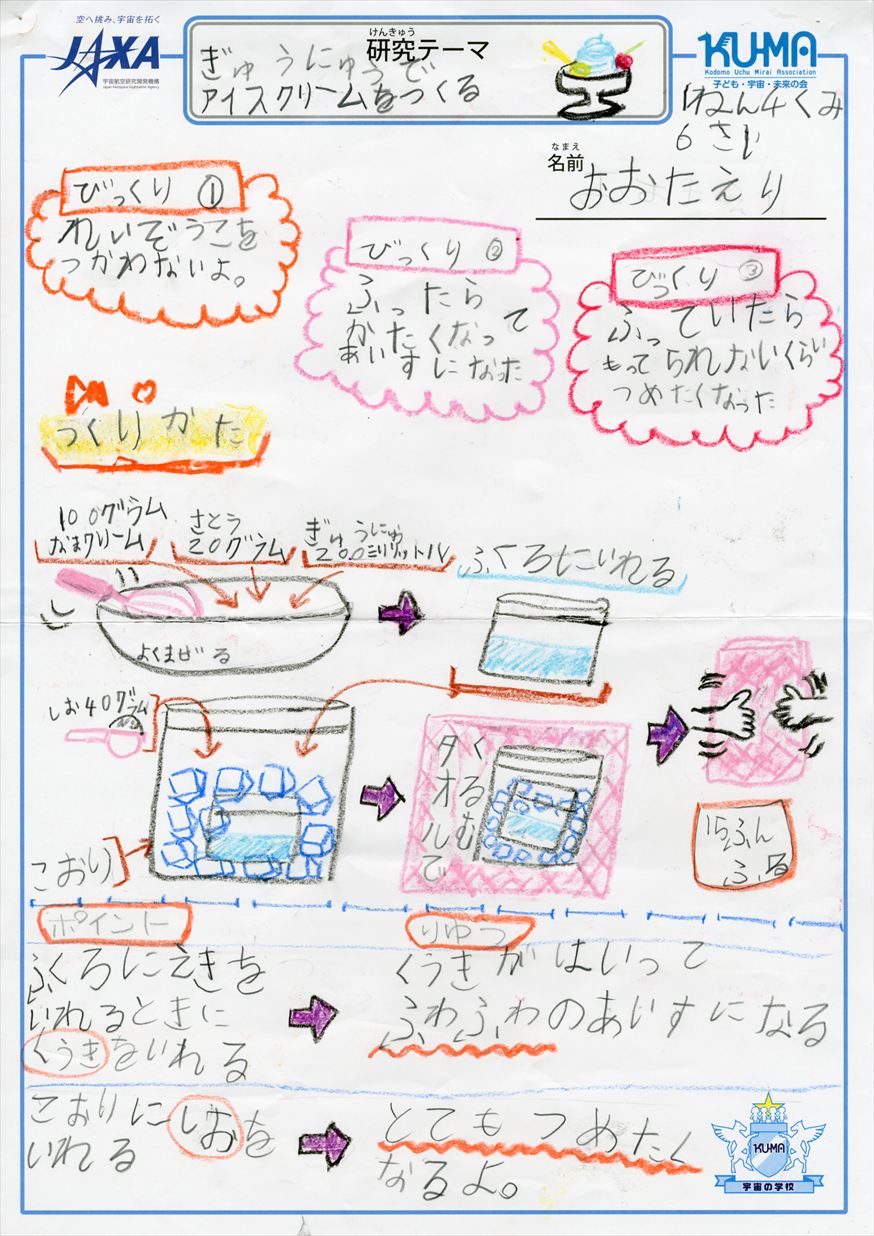 空へ挑み、宇宙を拓く
JAXA
宇宙航空研究開発機構
Japan Aerospace Exploration Agency
けんきゅう
研究テーマ
ぎゅうにゅうで
アイスクリームをつくる
KU-MA
Kodomo Uchu Mirai Association
子ども・宇宙・未来の会
1ねん4くみ
6さい
なまえ
名前
おおたえり
びっくり①
れいぞうこを
つかわないよ。
びっくり②
ふったら
かたくなって
あいすになった
びっくり③
ふっていたら
もってられないくらい
つめたくなった
つくりかた
100グラム
なまクリーム
さとう
20グラム
ぎゅうにゅう
200ミリリットル
ふくろにいれる
よくまぜる
しお40グラム
こおり
タオルで
くるむ
15ふん
ふる
ポイント
ふくろにえきを
いれるときに
くうきをいれる
りゆう
くうきがはいって
ふわふわのあいすになる
こおりにしおを
いれる
とてもつめたく
なるよ。
KU-MA
宇宙の学校